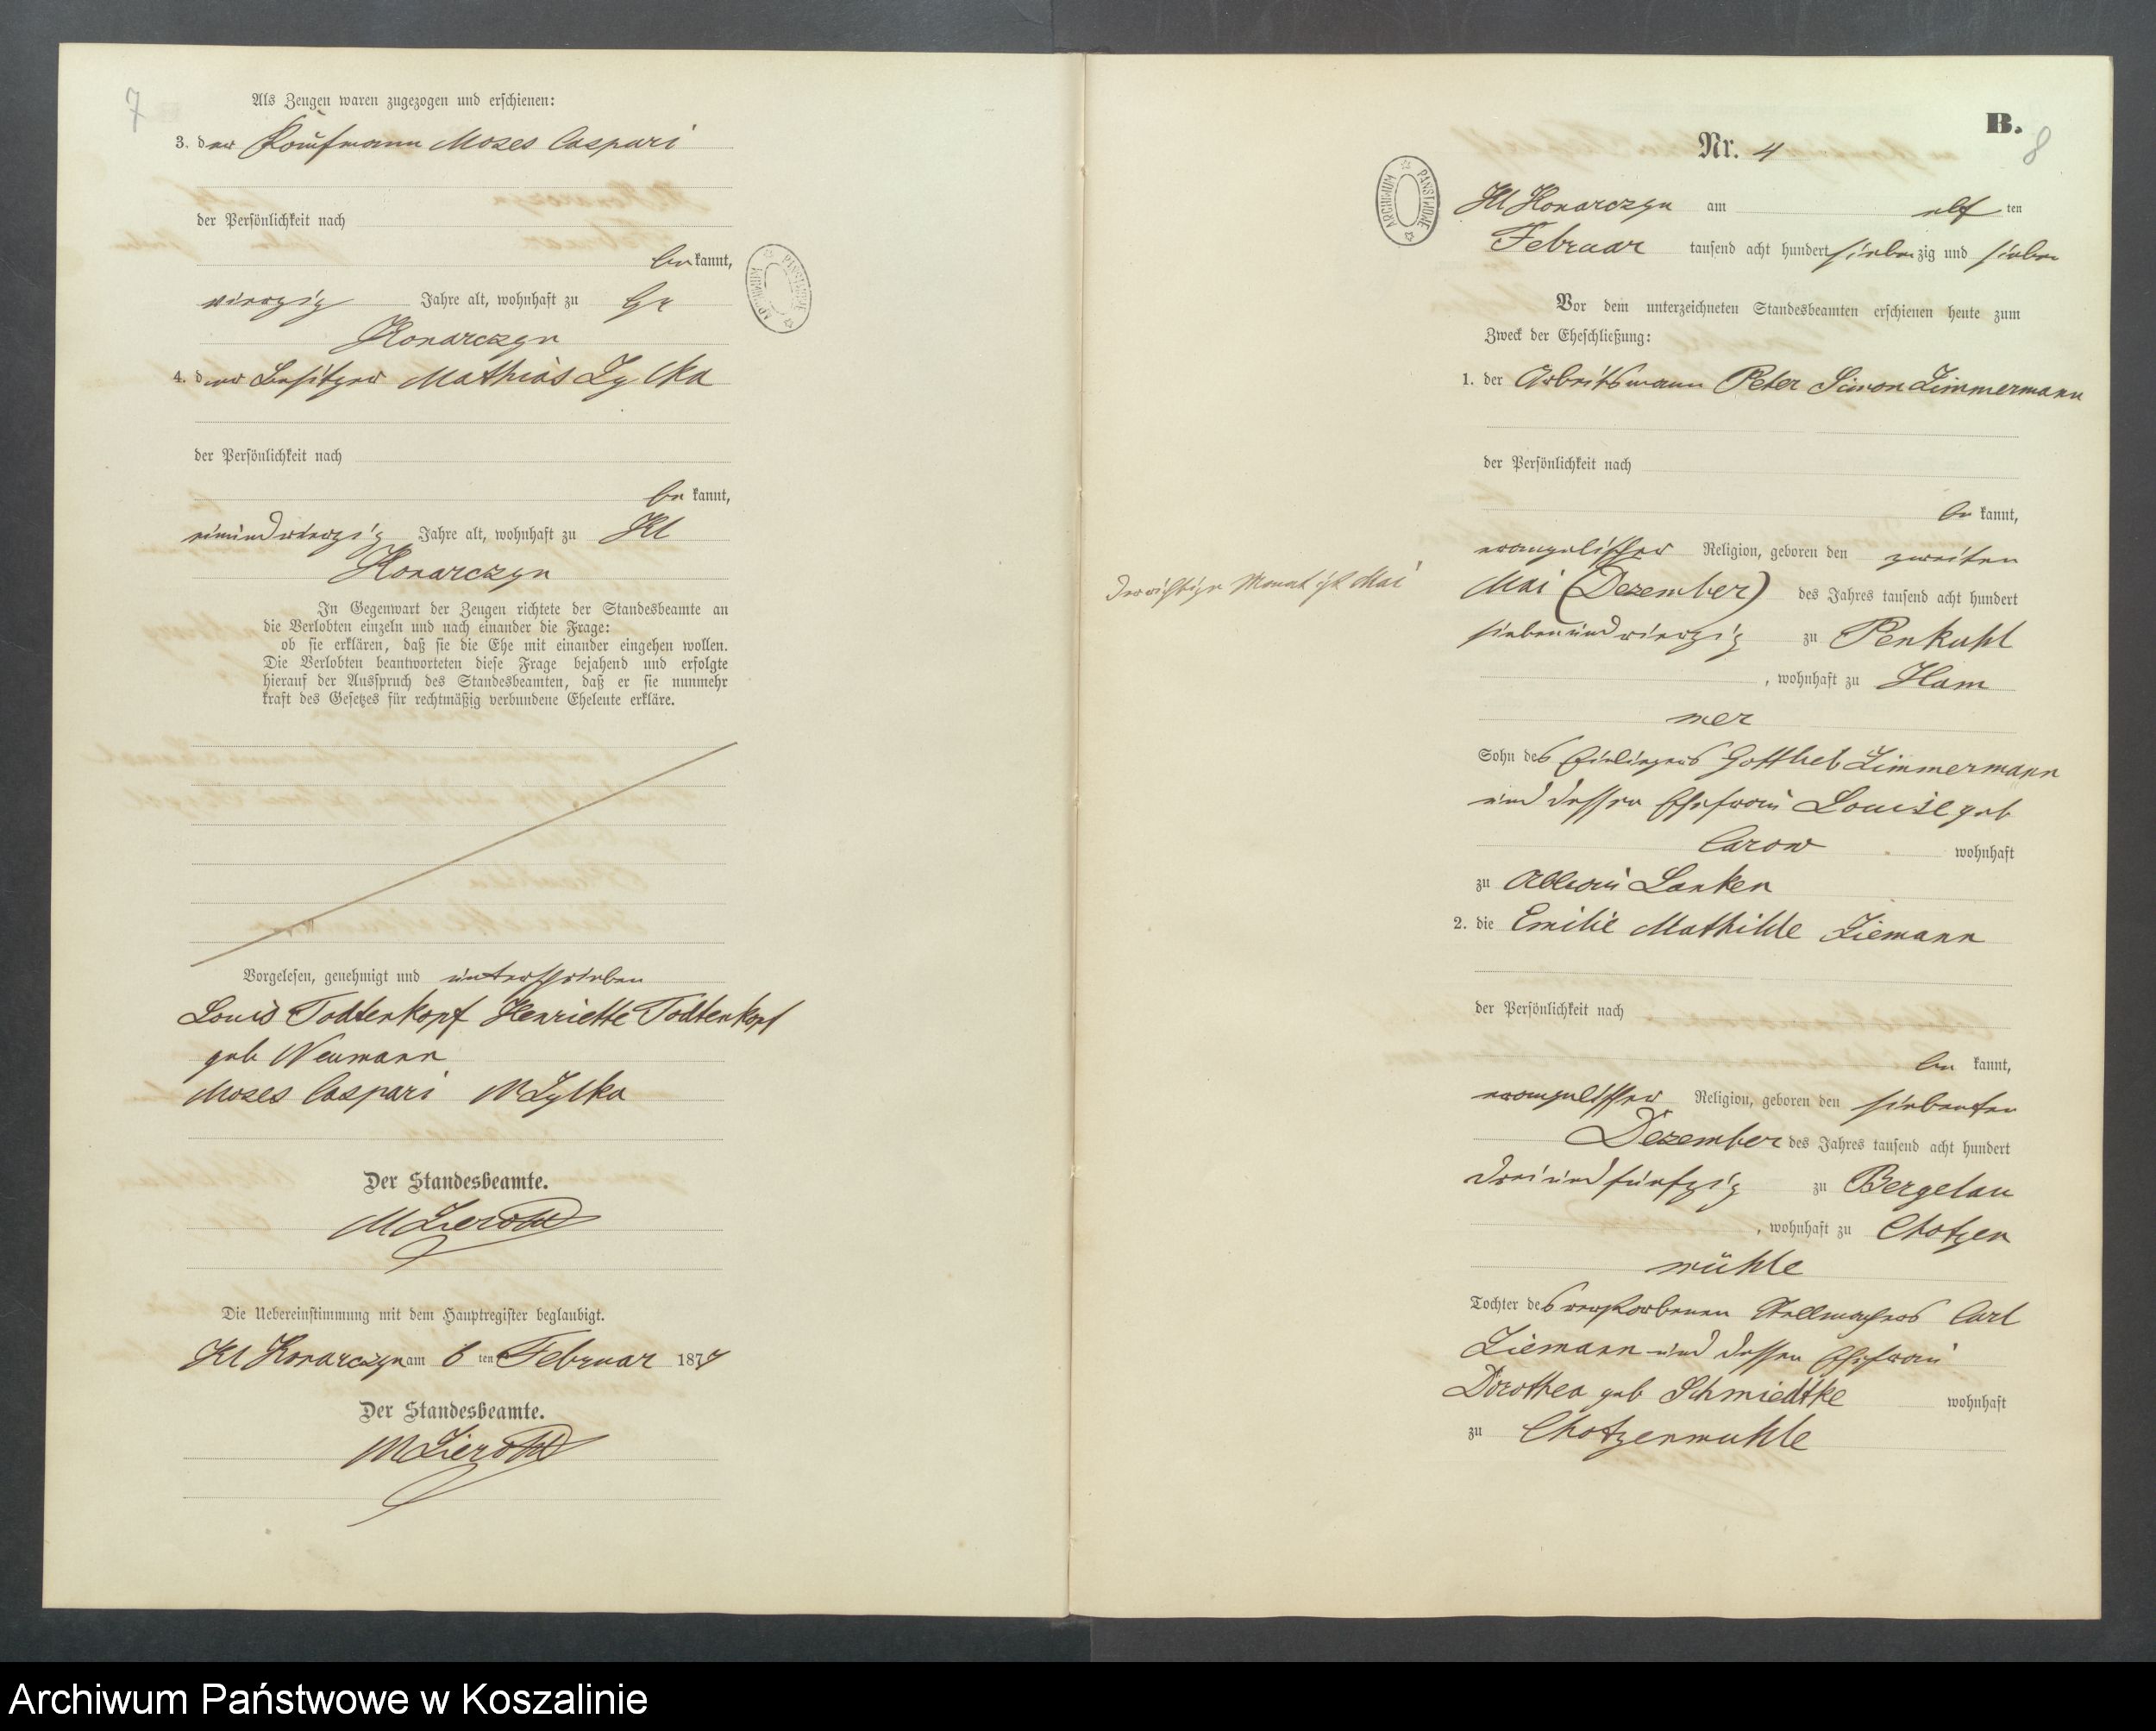 7
Als Zeugen waren zugezogen und erschienen:
3. der Kaufmann Moses Caspari
der Persönlichkeit nach
be kannt,
vierzig Jahre alt, wohnhaft zu Gr
Konarczyn
4. der Besitzer Mathias Zylka
der Persönlichkeit nach
be kannt,
einundvierzig Jahre alt, wohnhaft zu Kl
Konarczyn
In Gegenwart der Zeugen richtete der Standesbeamte an
die Verlobten einzeln und nach einander die Frage:
ob sie erklären, daß sie die Ehe mit einander eingehen wollen.
Die Verlobten beantworteten diese Frage bejahend und erfolgte
hierauf der Ausspruch des Standesbeamten, daß er sie nunmehr
kraft des Gesetzes für rechtmäßig verbundene Eheleute erkläre.
Vorgelesen, genehmigt und unterschrieben
Louis Todtenkopf Henriette Todtenkopf
geb Neumann
Moses Caspari M Zylka
Der Standesbeamte.
Die Uebereinstimmung mit dem Hauptregister beglaubigt.
Kl Konarczyn am 6 ten Februar 1877
Der Standesbeamte.
ARCHIWUM PAŃSTWOWE
B.
8
Nr. 4
ARCHIWUM PAŃSTWOWE
Kl Konarczyn am elf ten
Februar tausend acht hundert sieben zig und sieben
Vor dem unterzeichneten Standesbeamten erschienen heute zum
Zweck der Eheschließung:
1. der Arbeitsmann Peter Simon Zimmermann
der Persönlichkeit nach
be kannt,
evangelischer Religion, geboren den zweiten
Der richtige Monat ist Mai
Mai (Dezember) des Jahres tausend acht hundert
siebenundvierzig zu Penkuhl
, wohnhaft zu Ham
mer
Sohn des Einliegers Gottlieb Zimmermann
und dessen Ehefrau Louise geb
Carow wohnhaft
zu Abbau Lanken
2. die Emilie Mathilde Ziemann
der Persönlichkeit nach
be kannt,
evangelischer Religion, geboren den siebenten
Dezember des Jahres tausend acht hundert
dreiundfünfzig zu Bergelau
, wohnhaft zu Chotzen
mühle
Tochter des verstorbenen Stellmachers Carl
Ziemann und dessen Ehefrau
Dorothea geb Schmiedtke wohnhaft
zu Chotzenmuhle
Archiwum Państwowe w Koszalinie